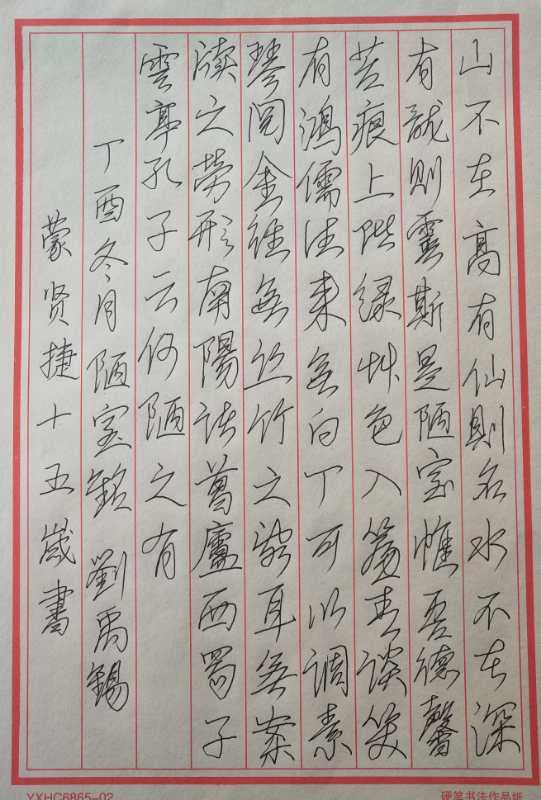 山不在高有仙則名水不在深
有龍則靈斯是陋室惟吾德馨
苔痕上階綠艸色入簾青談笑
有鴻儒往来無白丁可以調素
琴閱金經無丝竹之亂耳無案
牍之勞形南陽諸葛廬西蜀子
雲亭孔子云何陋之有
丁酉冬月陋室銘 劉禹錫
蒙贤捷十五歲書
YXHC6865-02
硬笔书法作品纸